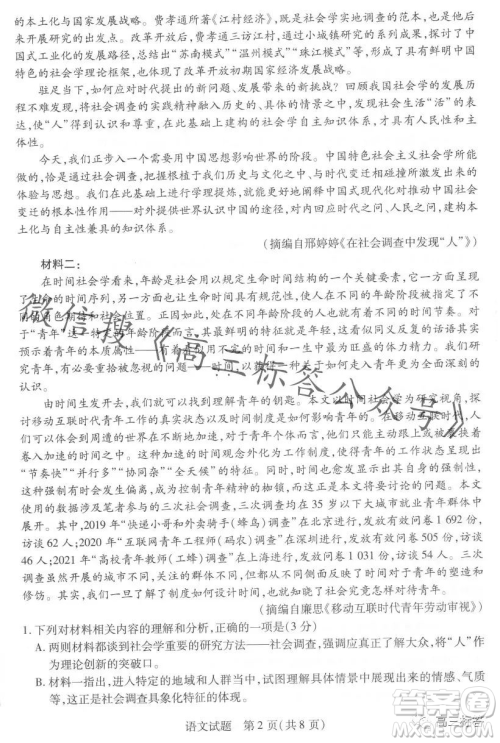 的本土化与国家发展战略。费孝通所著《江村经济》，既是社会学实地调查的范本，也是后
来开展研究的出发点。改革开放前期，费孝通三访江村，通过小城镇研究的系列成果，探讨了中
国式工业化的发展路径，总结出“苏南模式”“温州模式”“珠江模式”等，形成了具有鲜明中国
特色的社会学理论框架，也体现了改革开放初期国家经济发展战略。
驻足当下，如何应对时代提出的新问题、发展带来的新挑战？回顾我国社会学的发展历
程不难发现，将社会调查的实践精神融入历史的、具体的情景之中，发现社会生活“活”的表
达，使“人”得到认识和尊重，在此基础上建构的社会学自主知识体系，才具有人民性和主
体性。
今天，我们正步入一个需要用中国思想影响世界的阶段。中国特色社会主义社会学所能
做的，恰是通过社会调查，把握根植于我们历史与文化之中、与时代变迁相碰撞所激发出来的
体验与思想。我们在此基础上进行学理提炼，就能更好地阐释中国式现代化对中国经济社会
变迁的根本性作用——对外提供世界认识中国的途径，对内回应时代之问、人民之问，构建本
土化与自主性兼具的知识体系。
（摘编自邢婷婷《在社会调查中发现“人”》）
材料二：
在时间社会学看来，年龄是社会用以规定生命时间结构的一个关键要素，它一方面呈现了
生命的时间序列，另一方面规定了人们在社会时间中的位置，使人们在不同年龄阶段有着不
同的角色期待和社会位置。正因如此，不同年龄的人有着不同的时间体验和时间节奏。对
于“青年”这一特定的年龄阶段，其最鲜明的特征就是与时间的关系，这句反复出现的话语其实
预示着青年的本质属性——有着使用不完的时间以及面向未来的无限可能。因此，我们研
究青年，有一个不可忽视的视角——时间，以便提供一种关于如何成为青年更为全面深刻的
认识。
由时间生发开去，我们就可以找到理解青年的钥匙。本文以时间社会学为研究视角，探
讨移动互联时代青年工作的真实状态以及时间制度是如何形塑青年的。在移动互联时代，
由于新的社会时间逐渐外化为工作制度，对于青年个体而言，已然被各种形式的社会时间席
卷入加速的竞争中。但在社会时间的框架下，青年工作的时间状态也有着自身的特征，呈现出
“节奏快”“并行多”“协同杂”“全天候”的特征。而社会时间制度由于其自身的强制性，
这时就会发生偏离，成为控制青年精神的枷锁，而正是在这种制度化的控制下，青年对时间有
着强烈的无力感，只能被动地跟着社会时间往前走，陷入时间异化的困境之中。本文所使用
的数据涉及笔者参与的三次调查，均以在 35 岁以下大城市就业青年群体中
展开。其中，2019 年“快递小哥和外卖骑手（蜂鸟）调查”在北京进行，发放有效问卷 1 692 份，
访谈 62 人；2020 年“互联网青年工程师（码农）调查”在深圳进行，发放有效问卷 505 份，访谈
46 人；2021 年“高校青年教师（工蜂）调查”在上海进行，发放问卷 1 031 份，访谈 54 人。三次
调查虽然开展于不同年份、不同城市、不同群体，但随着调研的深入，我们发现时间正在塑造和
修饰、影响并重新构造今天的青年。
（摘编自廉思《移动互联时代青年劳动审视》）
1. 下列对材料相关内容的理解和分析，正确的一项是（3 分）
A. 两则材料都谈到社会学重要的研究方法——社会调查，强调应真正了解大众，将“人”作
为理论创新的突破口。
B. 材料一指出，进入特定的地域和人群中，试图理解具体情景中展现出来的情感、气质
等，这正是社会调查具象化特征的体现。
语文试题　第 2 页（共 8 页）
微信搜《高三标答公众号》
高三标答